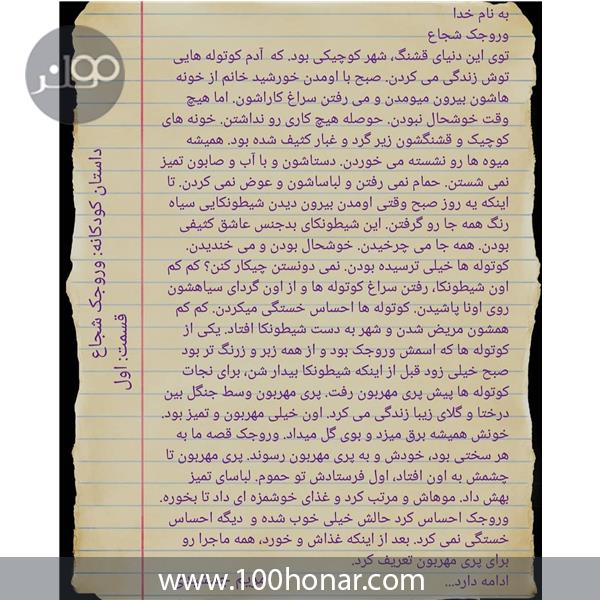 به نام خدا
وروجک شجاع
توی این دنیای قشنگ، شهر کوچیکی بود. که آدم کوتوله هایی
توش زندگی می کردن. صبح با اومدن خورشید خانم از خونه
هاشون بیرون میومدن و می رفتن سراغ کاراشون. اما هیچ
وقت خوشحال نبودن. حوصله هیچ کاری رو نداشتن. خونه های
کوچیک و قشنگشون زیر گرد و غبار کثیف شده بود. همیشه
میوه ها رو نشسته می خوردن. دستاشون و با آب و صابون تمیز
نمی شستن. حمام نمی رفتن و لباساشون و عوض نمی کردن. تا
اینکه یه روز صبح وقتی اومدن بیرون دیدن شیطونکایی سیاه
رنگ همه جا رو گرفتن. این شیطونکای بدجنس عاشق کثیفی
بودن. همه جا می چرخیدن. خوشحال بودن و می خندیدن.
کوتوله ها خیلی ترسیده بودن. نمی دونستن چیکار کنن؟ کم کم
اون شیطونکا، رفتن سراغ کوتوله ها و از اون گردای سیاهشون
روی اونا پاشیدن. کوتوله ها احساس خستگی میکردن. کم کم
همشون مریض شدن و شهر به دست شیطونکا افتاد. یکی از
کوتوله ها که اسمش وروجک بود و از همه زبر و زرنگ تر بود
صبح خیلی زود قبل از اینکه شیطونکا بیدار شن، برای نجات
کوتوله ها پیش پری مهربون رفت. پری مهربون وسط جنگل بین
درختا و گلای زیبا زندگی می کرد. اون خیلی مهربون و تمیز بود.
خونش همیشه برق میزد و بوی گل میداد. وروجک قصه ما به
هر سختی بود، خودش و به پری مهربون رسوند. پری مهربون تا
چشمش به اون افتاد، اول فرستادش تو حموم. لباسای تمیز
بهش داد. موهاش و مرتب کرد و غذای خوشمزه ای داد تا بخوره.
وروجک احساس کرد حالش خیلی خوب شده و دیگه احساس
خستگی نمی کرد. بعد از اینکه غذاش و خورد، همه ماجرا رو
برای پری مهربون تعریف کرد.
ادامه دارد...
داستان کودکانه: وروجک شجاع
قسمت: اول
www.100honar.com